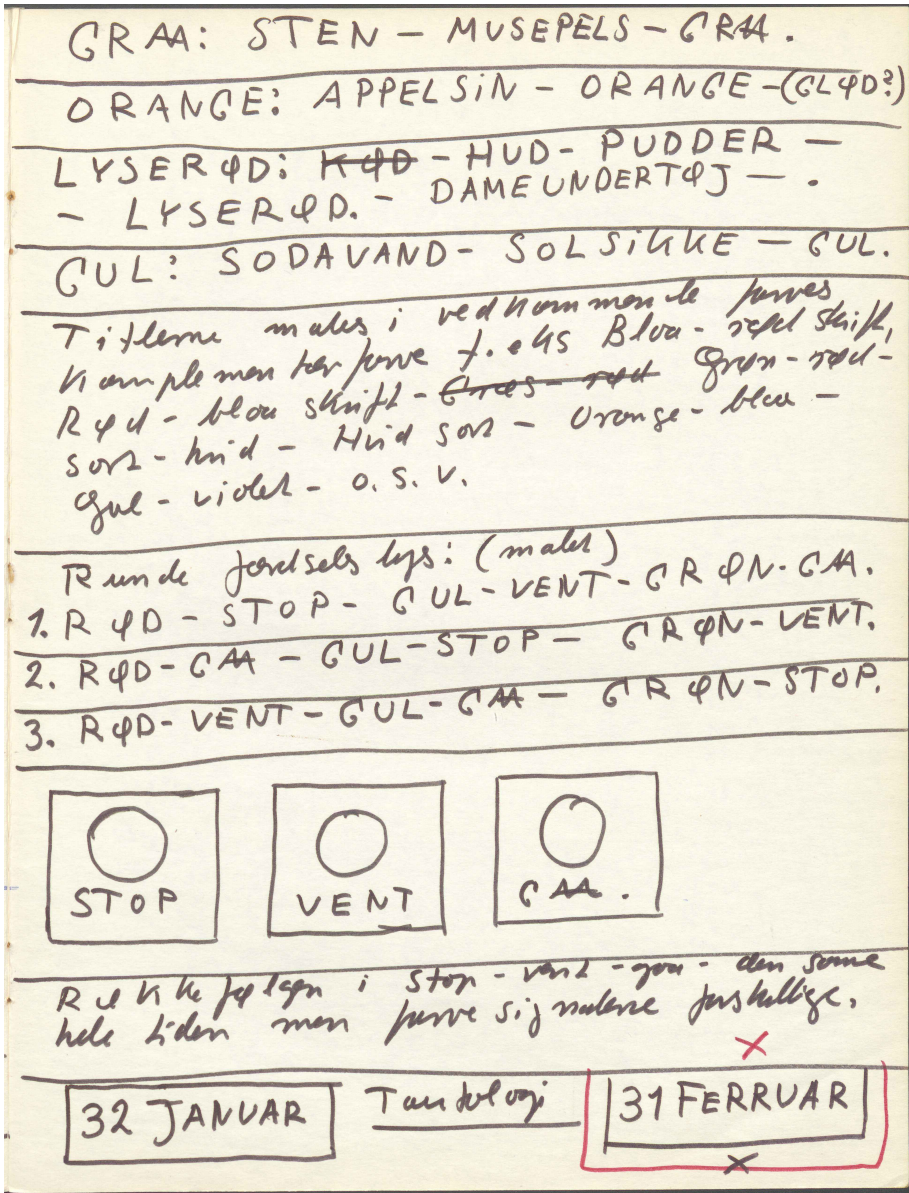 GRAA: STEN – MUSEPELS – GRAA.
ORANGE: APPELSIN – ORANGE – (GLØD?)
LYSERØD: KØD – HUD – PUDDER –
– LYSERØD. – DAMEUNDERTØJ – .
GUL: SODAVAND – SOLSIKKE – GUL.
Titlerne males i vedkommende farves
Komplementær farve f. eks Blaa - rød skrift,
Rød - blaa skrift - Græs - rød Grøn - rød -
sort - hvid - Hvid sort - Orange - blaa -
Gul - violet - o. s. v.
Runde færdselslys: (malet)
1. RØD – STOP – GUL – VENT – GRØN - GAA.
2. RØD – GAA – GUL – STOP – GRØN – VENT.
3. RØD – VENT – GUL – GAA – GRØN – STOP.
STOP VENT GAA.
Rækkefølgen i Stop - vent - gaa - den samme
hele tiden men farve signalerne forskellige.
32 JANUAR Tautologi 31 FERRUAR